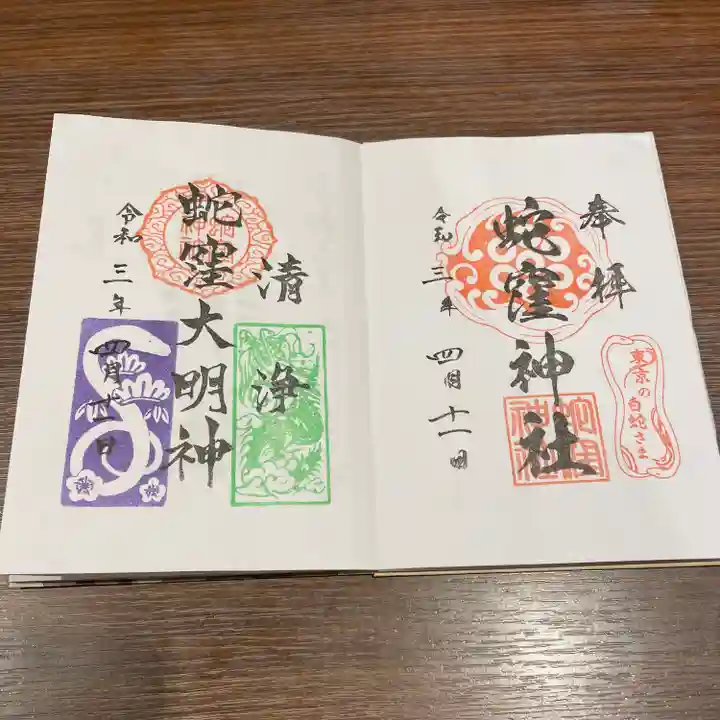 奉拝
蛇窪神社
東京の白蛇さま
令和三年
四月十一日
清浄
蛇窪大明神
令和三年
四月十一日